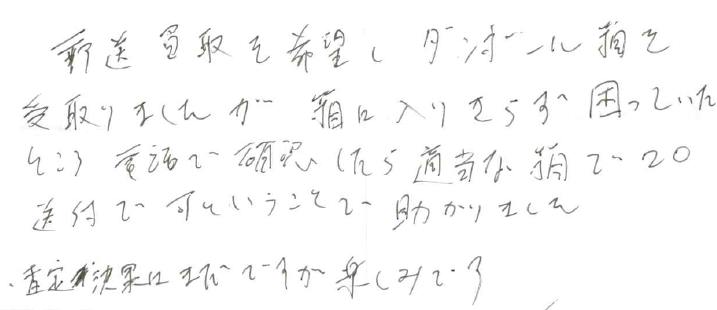 郵送買取を希望しダンボール箱を
受取りましたが 箱に入りきらず困っていた
ところ電話で確認したら適当な箱で20
送付で可ということで助かりました
・査定結果はまだですが楽しみです